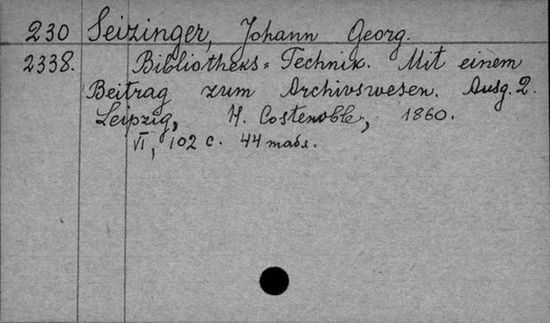 230 Seizinger, Johann Georg.
2338. Bibliotheks=Technik. Mit einem
Beitrag zum Archivswesen. Ausg. 2.
Leipzig, H. Costenoble, 1860.
VI, 102 с. 44 табл.